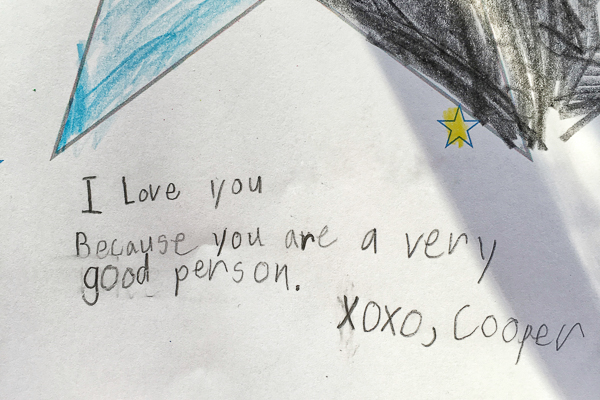 I Love you
Because you are a very
good person.
XOXO, Cooper